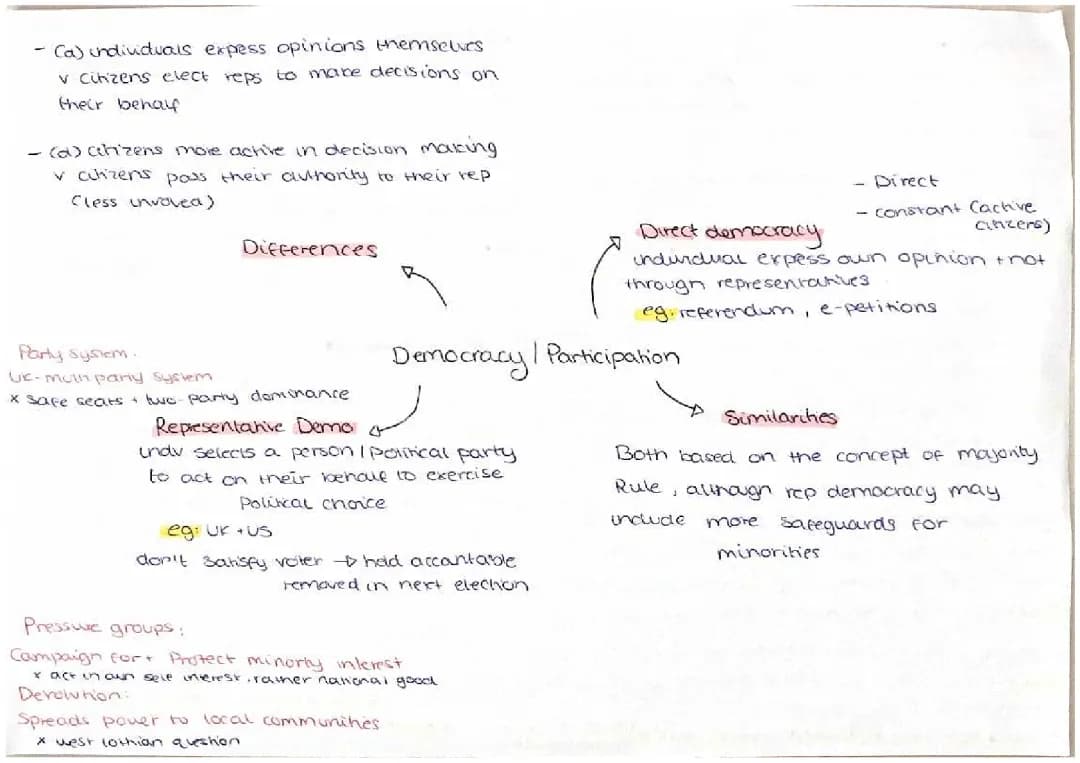 - (d) individuals expess opinions themselves
v citizens elect reps to make decisions on
their behalf
- (d) citizens more active in decision making
v citizens pass their authority to their rep
(less involed)
Differences
- Direct
- constant (active
citizens)
Direct democracy
individual expess own opinion + not
through representatives
eg: referendum, e-petitions
Democracy / Participation
Party system.
UK - multi party system
x safe seats + two-party dominance
Representative Demo
indv selects a person / political party
to act on their behalf to exercise
Political choice
eg: UK + US
don't satisfy voter → held accountable
removed in next election
Similarities
Both based on the concept of majority
Rule, although rep democracy may
include more safeguards for
minorities
Pressure groups:
Campaign for + Protect minority interest
x act in own self interest, rather national good
Devolution:
Spreads power to local communities
x west lothian question